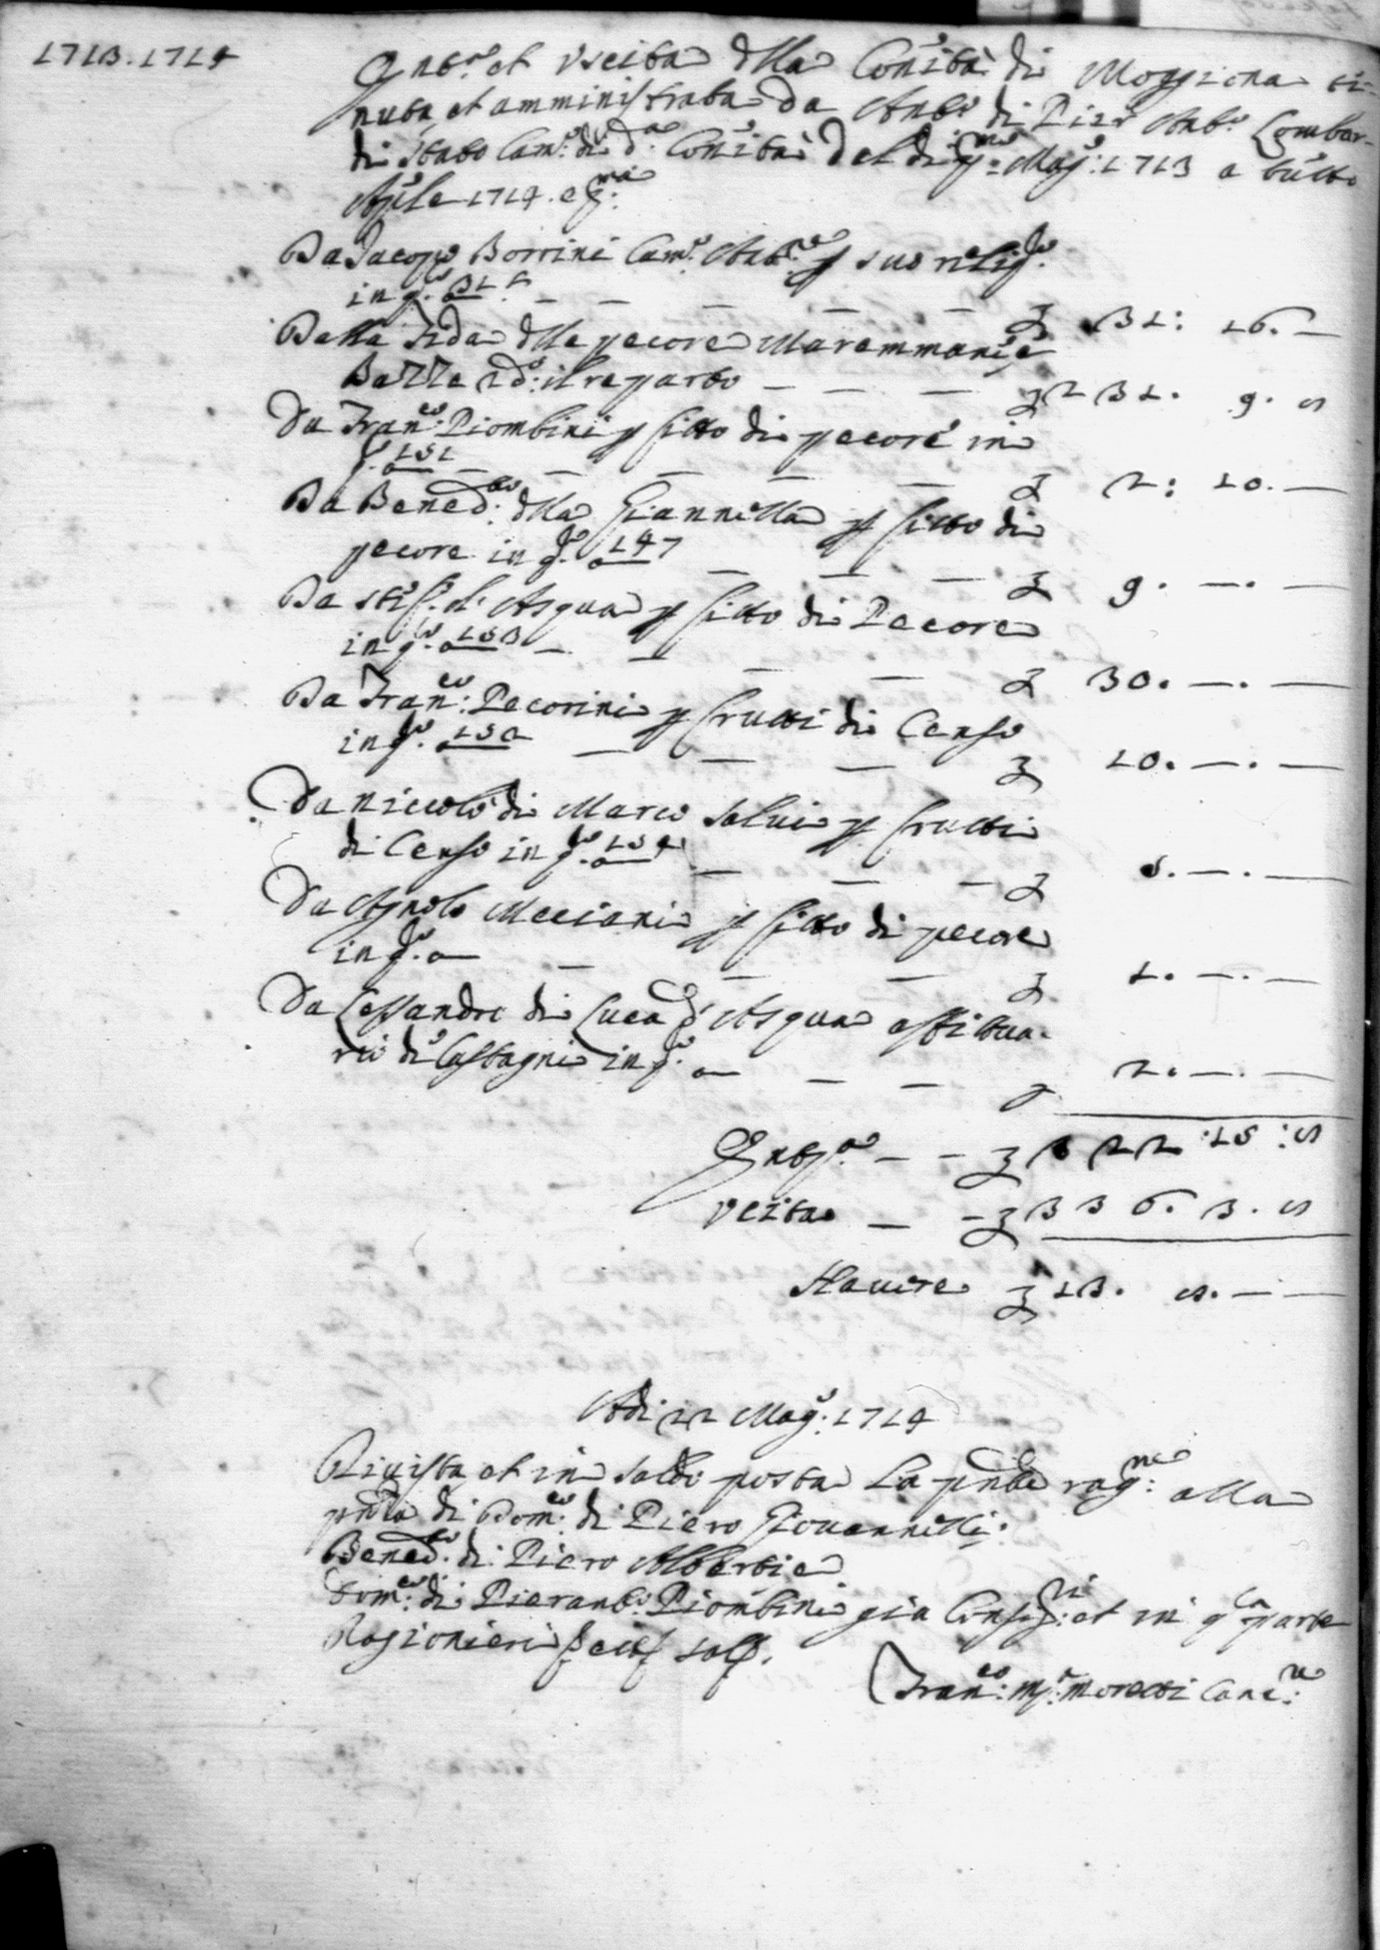 1713. 1714
Entr.ª et uscita dlla Com̃ità di Moggiona te-
nuta, et amministrata da Ant.º di Pier Ant.º Lombar-
di stato Cam.º di d.ª Com̃ità dal dì p.mo Mag.º 1713 a tutto
Aple 1714. e p.ma
Da Jacopo Borrini Cam.º Ant.re p suo
in q.º a 31
Dalla Fida dlle pecore Maremmane
il reparto ₤ 231. 9. 5
Da Fran.co Piombini p fitto di pecore in
q.º a 151 ₤ 2: 10. —
Da Bened.to dlla Giannella p fitto di
pecore in q.º a 147 ₤ 9. —. —
Da d'Asqua p fitto di Pecore
in q.º a 153 ₤ 30. —. —
Da Fran.co Pecorini p frutti di Censo
in q.º a 152 ₤ 10. —. —
Da Niccolò di Marco Salvi p frutti
di Censo in q.º a 154 ₤ 5. —. —
Da Agnolo Meciani p fitto di pecore
in q.º a — ₤ 1. —. —
Da Lessandro di Luca d'Asqua affittua-
rio di Castagni in q.º a — 2. —. —
Entr.ª — — ₤ 322: 15: 5
Uscita — — ₤ 336. 3. 5
Havere ₤ 13. 5. — —
Adì 22 Mag.º 1714
Rivista, et in saldo posta la pñte rag.ne alla
pñza di Dom.co di Piero Giovannelli.
Bened.to di Piero Alberti e
Dom.co di Pierant.º Piombini gia Consig.ri et in q.ta parte
Ragionieri
Fran.co M.ª Moretti Canc.re